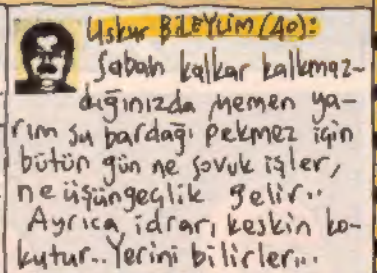 Uskur BİLEYLİM (40):
Sabah kalkar kalkmaz-
dığınızda hemen ya-
rım su bardağı pekmez için
bütün gün ne sovuk işler,
ne üşüngeçlik gelir..
Ayrıca, idrarı keskin ko-
kutur.. Yerini bilirler...